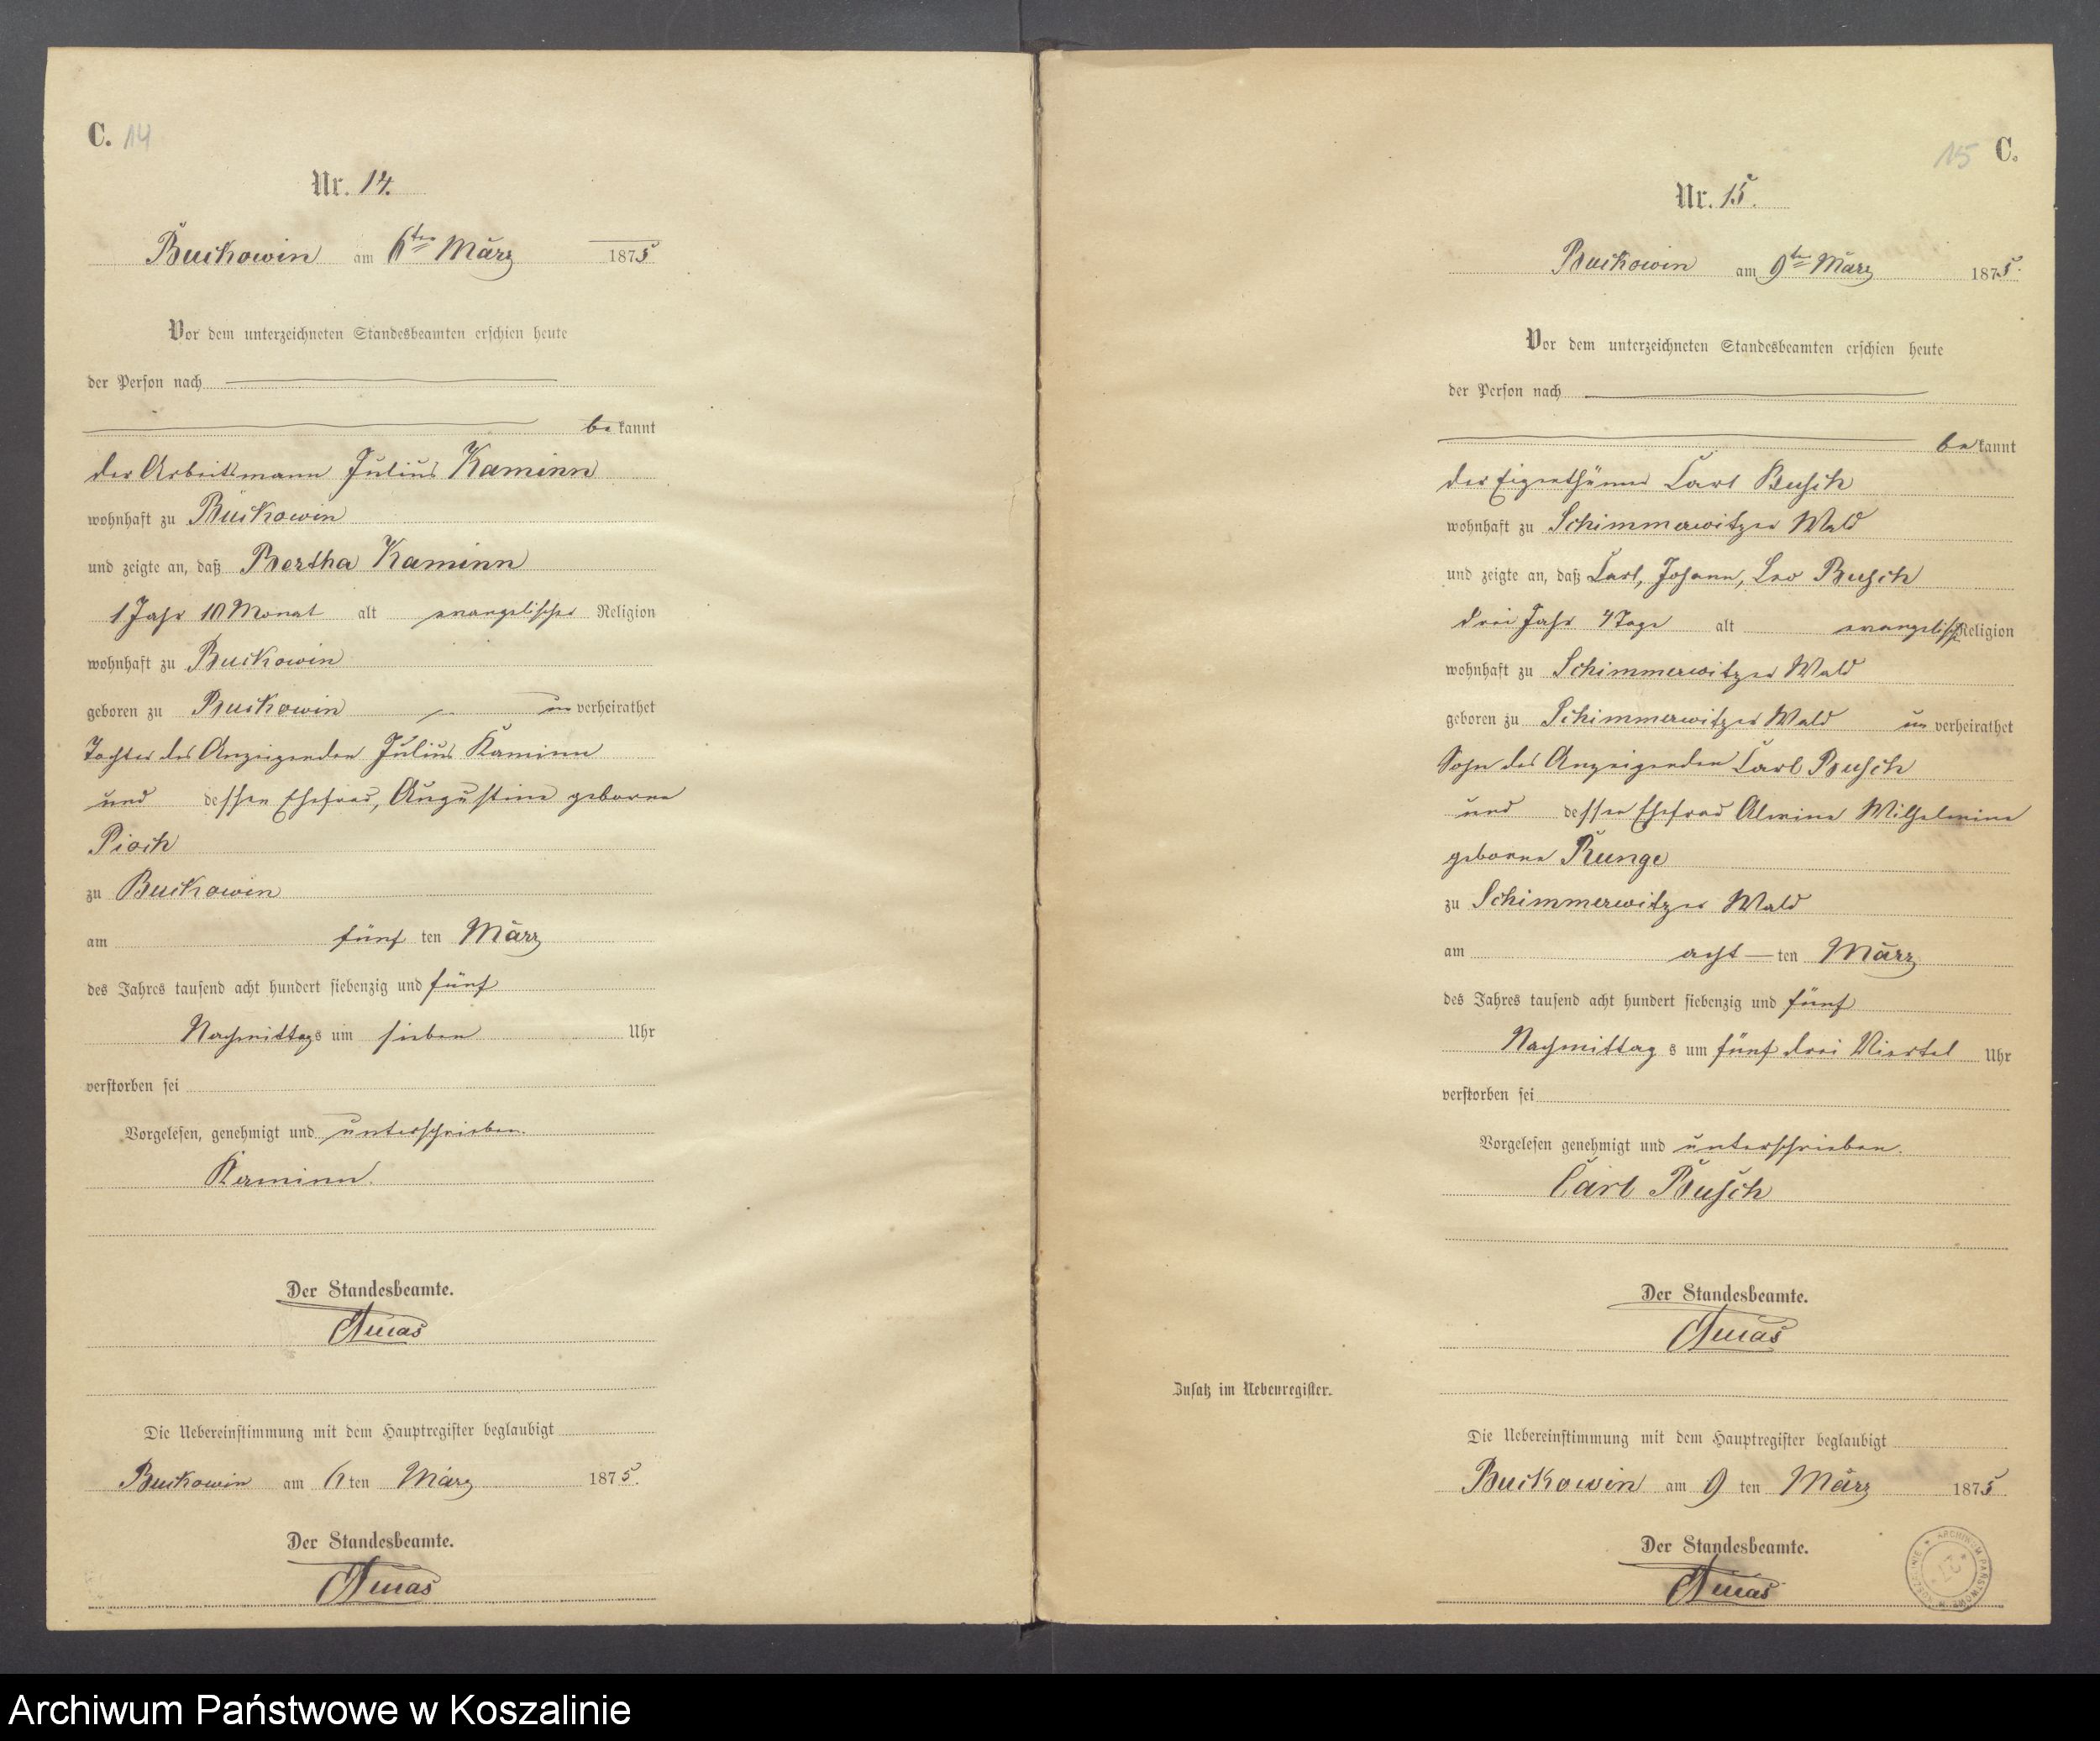 C. 14
Nr. 14.
Buckowin am 6ten März 1875
Vor dem unterzeichneten Standesbeamten erschien heute
der Person nach
be kannt
der Arbeitsmann Julius Kaminn
wohnhaft zu Buckowin
und zeigte an, daß Bertha Kaminn
1 Jahr 10 Monat alt evangelischer Religion
wohnhaft zu Buckowin
geboren zu Buckowin un verheirathet
Tochter des Anzeigenden Julius Kaminn
und dessen Ehefrau, Augustine geborne
Pioch
zu Buckowin
am fünf ten März
des Jahres tausend acht hundert siebenzig und fünf
Nachmittags um sieben Uhr
verstorben sei
Vorgelesen, genehmigt und unterschrieben.
Kaminn.
Der Standesbeamte.
Die Uebereinstimmung mit dem Hauptregister beglaubigt
Buckowin am 6 ten März 1875.
Der Standesbeamte.
15 C.
Nr. 15.
Buckowin am 9ten März 1875.
Vor dem unterzeichneten Standesbeamten erschien heute
der Person nach
be kannt
der Eigenthümer Carl Busch
wohnhaft zu Schimmerwitzer Wald
und zeigte an, daß Carl, Johann, Leo Busch
drei Jahr 4 Tage alt evangelisch Religion
wohnhaft zu Schimmerwitzer Wald
geboren zu Schimmerwitzer Wald un verheirathet
Sohn des Anzeigenden Carl Busch
und dessen Ehefrau Alwine Wilhelmine
geborne Runge
zu Schimmerwitzer Wald
am acht — ten März
des Jahres tausend acht hundert siebenzig und fünf
Nachmittag s um fünf drei Viertel Uhr
verstorben sei
Vorgelesen genehmigt und unterschrieben.
Carl Busch
Der Standesbeamte.
Zusatz im Nebenregister.
Die Uebereinstimmung mit dem Hauptregister beglaubigt
Buckowin am 9 ten März 1875
Der Standesbeamte.
Archiwum Państwowe w Koszalinie